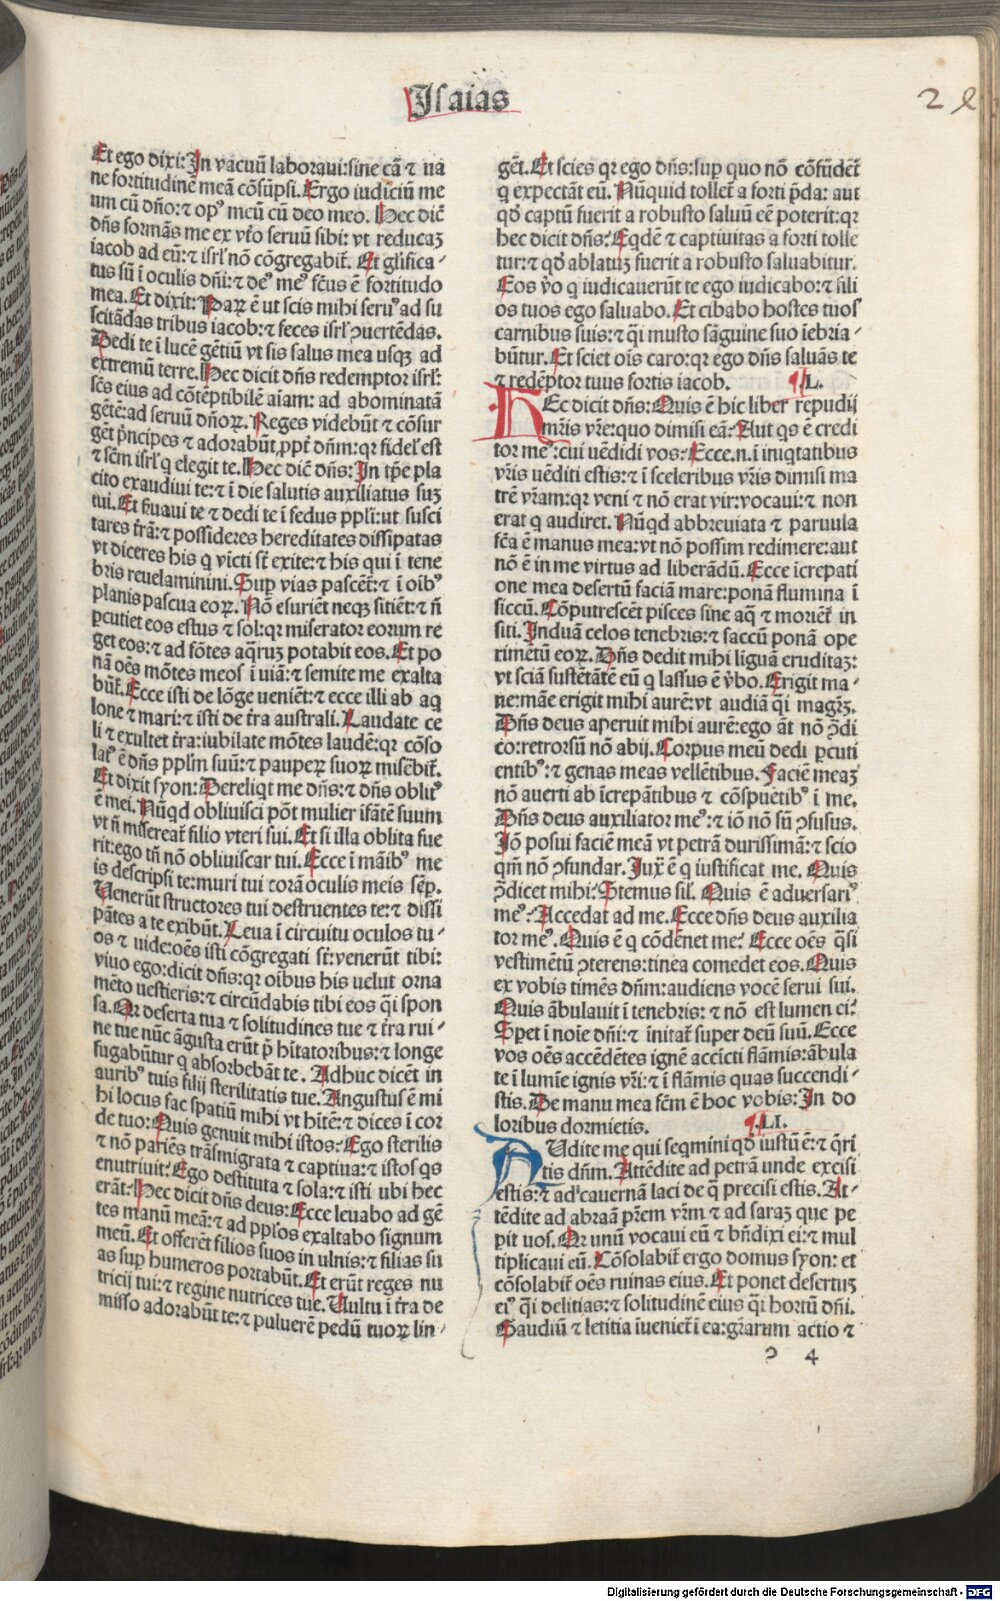 Isaias
2 l
Et ego dixi: In vacuū laboraui: sine cā ⁊ va
ne fortitudinē meā cōsūpsi. Ergo iudiciū me
um cū dn̄o: ⁊ opꝰ meū cū deo meo. Hec dic̄
dn̄s formās me ex vt̄o seruū sibi: vt reducaꝫ
iacob ad eū: ⁊ isrl̓ nō cōgregabit̄. Et gl̓ifica-
tus sū ī oculis dn̄i: ⁊ deꝰ meꝰ fc̄us ē fortitudo
mea. Et dixit: Parꝝ ē ut scis mihi seruꝰ ad su
scitādas tribus iacob: ⁊ feces isrl̓ ꝯuertēdas.
Dedi te ī lucē gētiū vt sis salus mea usqꝫ ad
extremū terre. Hec dicit dn̄s redemptor isrl̓:
sc̄s eius ad cōtēptibilē aiam: ad abominatā
gētē: ad seruū dn̄oꝝ. Reges videbūt ⁊ cōsur
gēt p̄ncipes ⁊ adorabūt, ꝓpt̄ dn̄m: qꝛ fidel̓ est
⁊ sc̄m isrl̓ q elegit te. Hec dic̄ dn̄s: In tp̄e pla
cito exaudiui te: ⁊ ī die salutis auxiliatus suꝫ
tui. Et ẜuaui te ⁊ dedi te ī fedus ppl̓i: ut susci
tares t̄rā: ⁊ possideres hereditates dissipatas
vt diceres his q vīcti st̄ exite: ⁊ his qui ī tene
bris reuelaminini. Suꝑ vias pascēt̄: ⁊ ī oībꝰ
planis pascua eoꝝ. Nō esuriēt neqꝫ sitiēt: ⁊ n̄
ꝑcutiet eos estus ⁊ sol: qꝛ miserator eorum re
get eos: ⁊ ad fōtes aq̄ruꝫ potabit eos. Et po
nā oēs mōtes meos ī uiā: ⁊ semite me exalta
būt̄. Ecce isti de lōge ueniēt: ⁊ ecce illi ab aq
lone ⁊ mari: ⁊ isti de t̄ra australi. Laudate ce
li ⁊ exultet t̄ra: iubilate mōtes laudē: qꝛ cōso
latꝰ ē dn̄s ppl̓m suū: ⁊ pauperꝝ suoꝝ misēbit̄.
Et dixit syon: Dereliqt me dn̄s: ⁊ dn̄s oblitꝰ
ē mei. Nūqd obliuisci pōt mulier īfātē suum
vt n̄ misereat̄ filio vteri sui. Et si illa oblita fue
rit: ego tn̄ nō obliuiscar tui. Ecce ī māibꝰ me
is descripsi te: muri tui corā oculis meis sēꝑ.
Uenerūt structores tui destruentes te: ⁊ dissi
pātes a te exibūt. Leua ī circuitu oculos tu-
os ⁊ uide: oēs isti cōgregati st̄: venerūt tibi:
viuo ego: dicit dn̄s: qꝛ oībus his velut orna
mēto uestieris: ⁊ circūdabis tibi eos q̄i spon
sa. Qꝛ deserta tua ⁊ solitudines tue ⁊ t̄ra rui-
ne tue nūc āgusta erūt p̄ hītatoribus: ⁊ longe
fugabūtur q absorbebāt te. Adhuc dicēt in
auribꝰ tuis filij sterilitatis tue. Angustus ē mi
hi locus fac spatiū mihi vt hitē: ⁊ dices ī cor
de tuo: Quis genuit mihi istos: Ego sterilis
⁊ nō pariēs trāsmigrata ⁊ captiua: ⁊ istos qs
enutriuit: Ego destituta ⁊ sola: ⁊ isti ubi hec
erāt: Hec dicit dn̄s deus: Ecce leuabo ad gē
tes manū meā: ⁊ ad pp̓los exaltabo signum
meū. Et offerēt filios suos in ulnis: ⁊ filias su
as suꝑ humeros portabūt. Et erūt reges nu
tricij tui: ⁊ regine nutrices tue. Uultu ī t̄ra de
misso adorabūt te: ⁊ puluerē pedū tuoꝝ lin-
gēt. Et scies qꝛ ego dn̄s: suꝑ quo nō cōfūdēt̄
q expectāt eū. Nūquid tollet̄ a forti p̄da: aut
qd̓ captū fuerit a robusto saluū eē poterit: qꝛ
hec dicit dn̄s: Eqdē ⁊ captiuitas a forti tolle
tur: ⁊ qd̓ ablatuꝫ fuerit a robusto saluabitur.
Eos v̓o q iudicauerūt te ego iudicabo: ⁊ fili
os tuos ego saluabo. Et cibabo hostes tuos
carnibus suis: ⁊ q̄i musto sāguine suo īebria-
būtur. Et sciet oīs caro: qꝛ ego dn̄s saluās te
⁊ redēptor tuus fortis iacob. ¶ .L.
HEc dicit dn̄s: Quis ē hic liber repudij
mr̄is vr̄e: quo dimisi eā: Aut qs ē credi
tor meꝰ: cui uēdidi vos: Ecce .n. ī iniqtatibus
vr̄is uēditi estis: ⁊ ī sceleribus vr̄is dimisi ma
trē vr̄am: qꝛ veni ⁊ nō erat vir: vocaui: ⁊ non
erat q audiret. Nūqd abbreviata ⁊ paruula
fc̄a ē manus mea: vt nō possim redimere: aut
nō ē in me virtus ad liberādū. Ecce īcrepati
one mea desertū faciā mare: ponā flumina ī
siccū. Cōputrescēt pisces sine aq̄ ⁊ moriēt̄ in
siti. Induā celos tenebris: ⁊ saccū ponā ope
rimētū eoꝝ. Dn̄s dedit mihi līguā eruditaꝫ:
vt sciā sustētāte eū q lassus ē v̓bo. Erigit ma-
ne: māe erigit mihi aurē: vt audiā q̄i magrꝫ.
Dn̄s deus aperuit mihi aurē: ego āt nō ꝯ̄di
co: retrorsū nō abij. Corpus meū dedi ꝑcuti
entibꝰ: ⁊ genas meas vellētibus. Faciē meaꝫ
nō auerti ab īcrepātibus ⁊ cōspuētibꝰ ī me.
Dn̄s deus auxiliator meꝰ: ⁊ iō nō sū ꝯfusus.
Iō posui faciē meā vt petrā durissimā: ⁊ scio
qm̄ nō ꝯfundar. Iuxͣ ē q iustificat me. Quis
ꝯ̄dicet mihi: Stemus sil̓. Quis ē aduersariꝰ
meꝰ: Accedat ad me. Ecce dn̄s deus auxilia
tor meꝰ. Quis ē q cōdēnet me: Ecce oēs q̄si
vestimētū ꝯterens: tinea comedet eos. Quis
ex vobis timēs dn̄m: audiens vocē serui sui.
Quis ābulauit ī tenebris: ⁊ nō est lumen ei:
Speret ī noīe dn̄i: ⁊ īnitat̄ super deū suū. Ecce
vos oēs accēdētes ignē accīcti flāmis: ābula
te ī lumīe ignis vr̄i: ⁊ ī flāmis quas succendi-
stis. De manu mea fc̄m ē hoc vobis: In do
loribus dormietis. ¶ .LI.
AUdite me qui seqmini qd̓ iustū ē: ⁊ q̄ri
tis dn̄m. Attēdite ad petrā unde excisi
estis: ⁊ ad cauernā laci de q̄ precisi estis. At-
tēdite ad abraā pr̄em vr̄m ⁊ ad saraꝫ que pe
ꝑit uos. Qꝛ unū vocaui eū ⁊ bn̄dixi ei: ⁊ mul
tiplicaui eū. Cōsolabit̄ ergo domus syon: et
cōsolabit̄ oēs ruinas eius. Et ponet desertuꝫ
eiꝰ q̄i delitias: ⁊ solitudinē eius q̄i hortū dn̄i.
Gaudiū ⁊ letitia īueniet̄ ī ea: gr̄arum actio ⁊
ꝯ 4
Digitalisierung gefördert durch die Deutsche Forschungsgemeinschaft - DFG